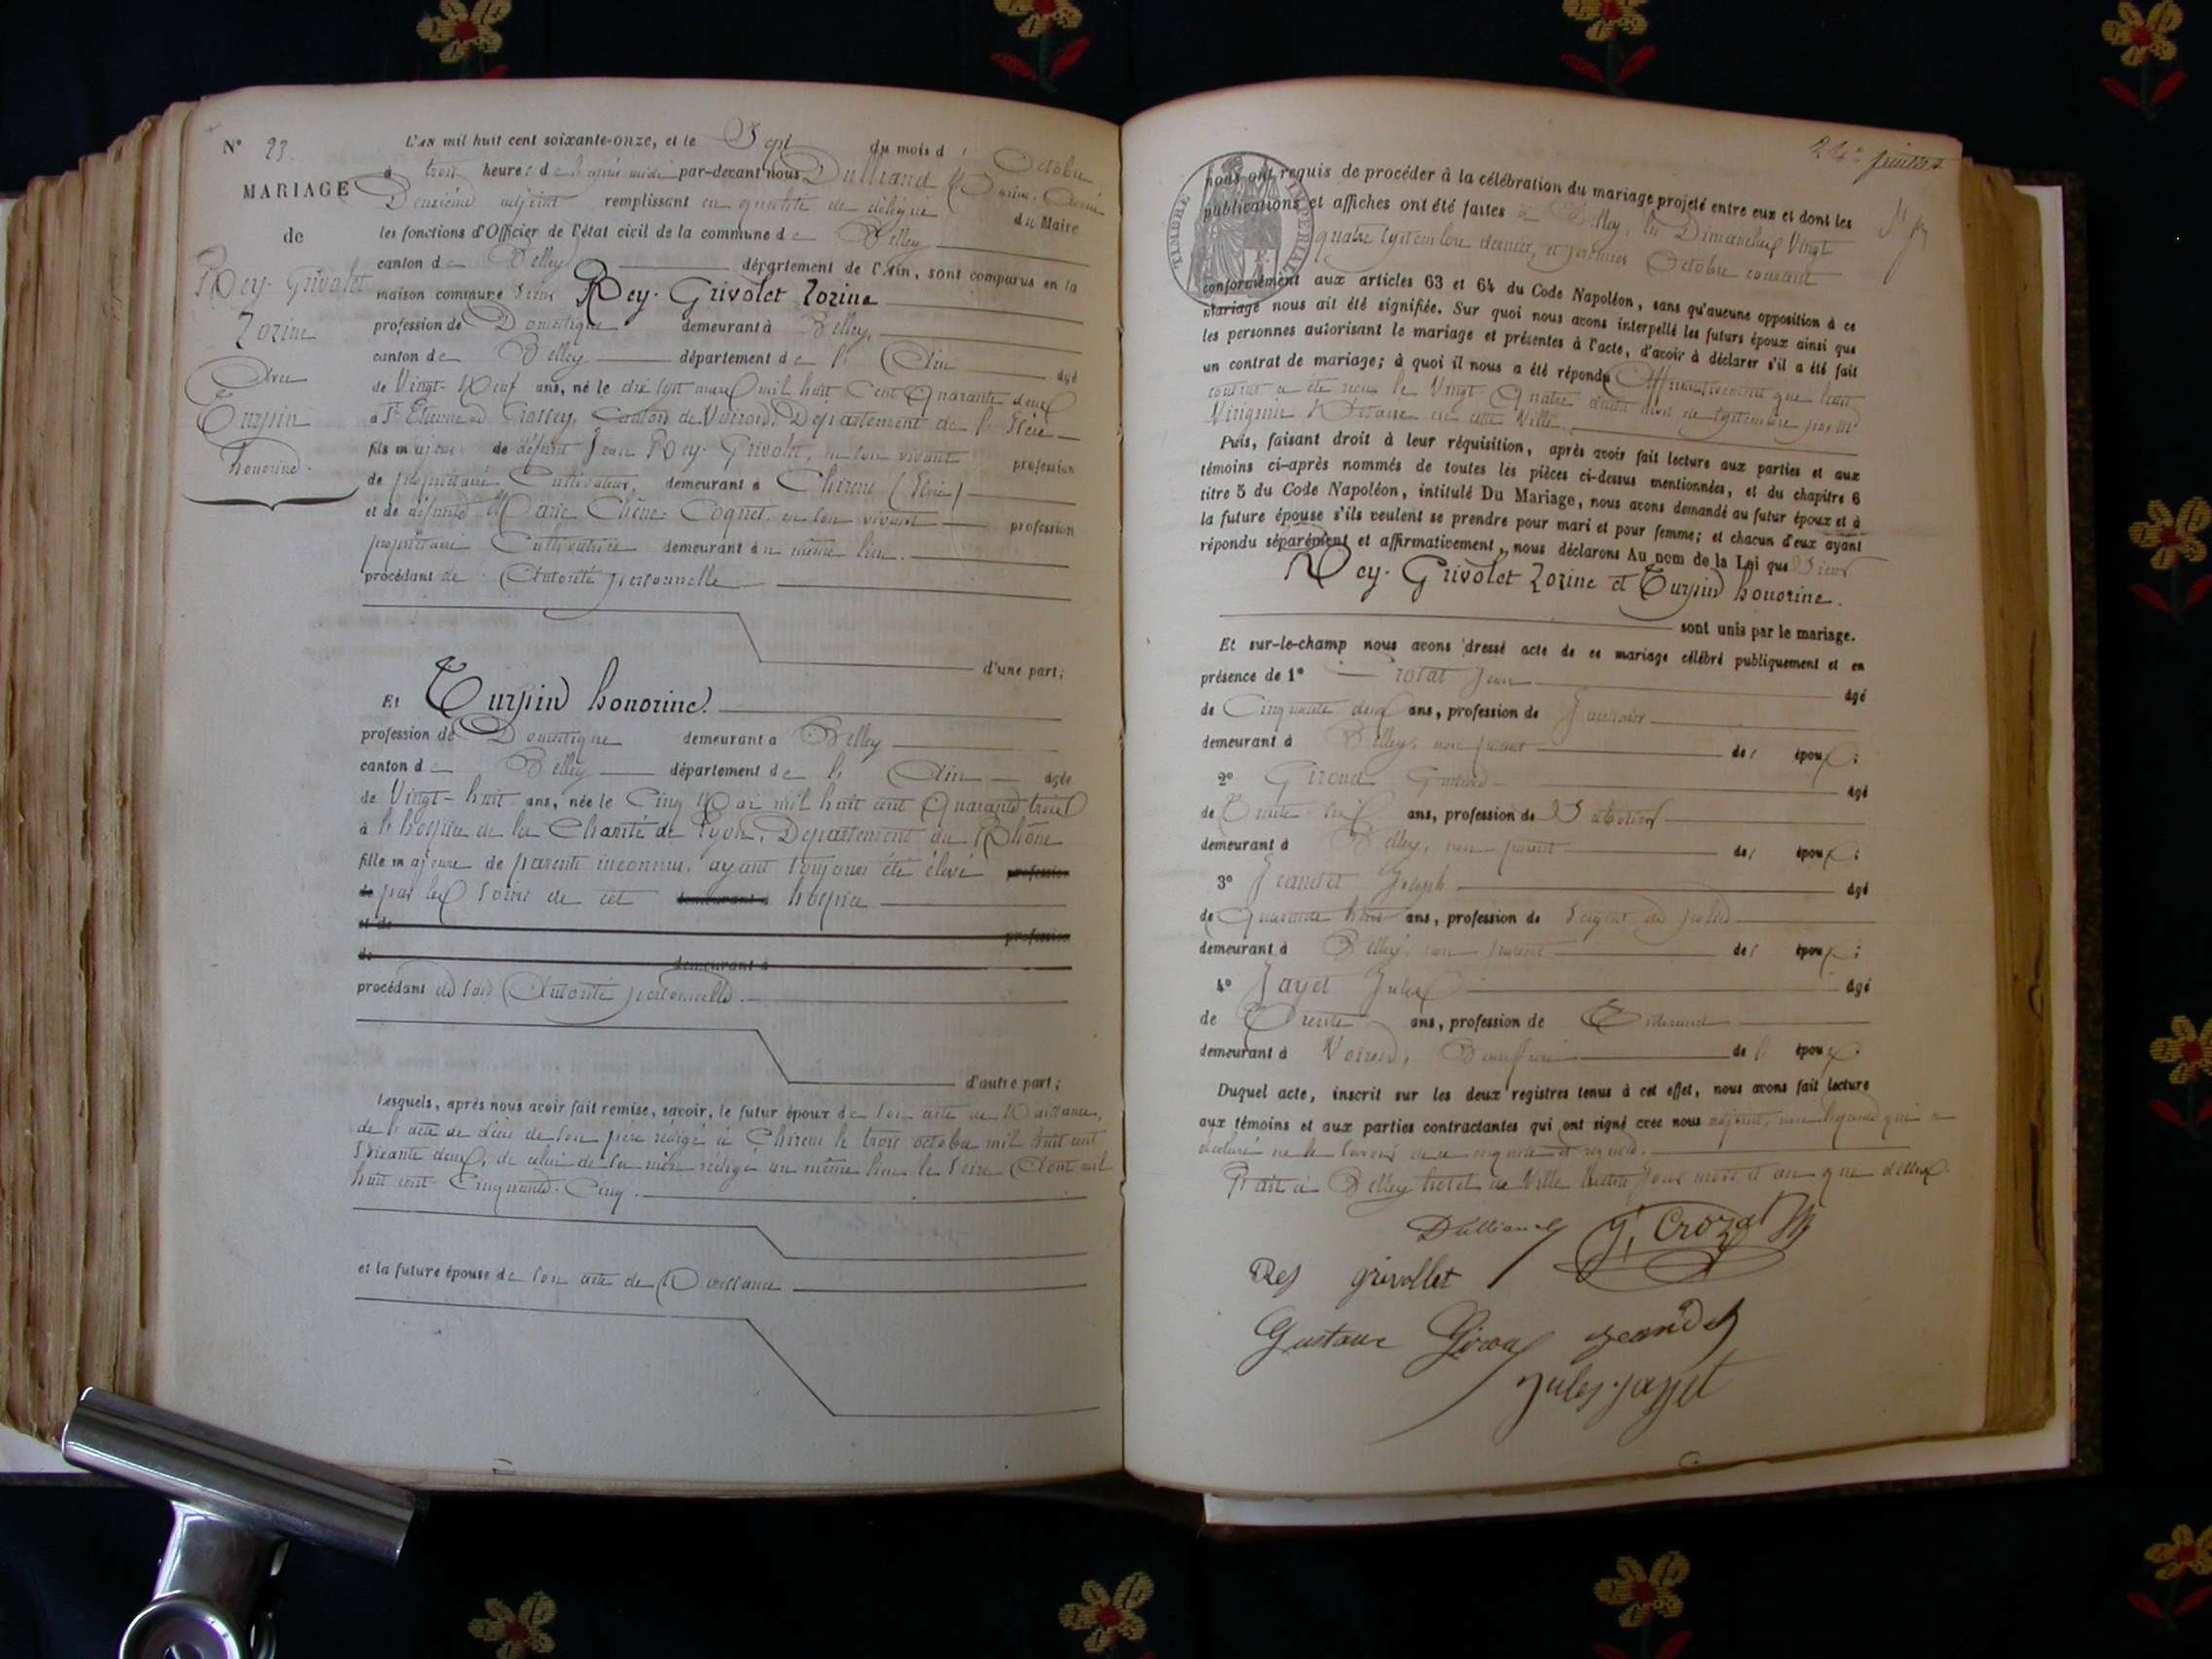 N° 23.
MARIAGE
de
Rey-Grivolet
Zozine
Avec
Turpin
honorine.
L'AN mil huit cent soixante-onze, et le Sept du mois d' Octobre
à trois heures de l'après midi par-devant nous Dulliand
Deuxième adjoint remplissant en qualité de délégué du Maire
les fonctions d'Officier de l'état civil de la commune de Belley
canton de Belley département de l'Ain, sont comparus en la
maison commune Sieur Rey-Grivolet Zozine
profession de Domestique demeurant à Belley,
canton de Belley département de l' Ain âgé
de Vingt-Neuf ans, né le dix sept mars mil huit Cent Quarante deux
à St Etienne de Crossey, Canton de Voiron, Département de l'Isère
fils majeur de défunt Jean Rey-Grivolet, en son vivant profession
de propriétaire Cultivateur, demeurant à Chirens (Isère)
et de défunte Marie Chêne-Coquet, en son vivant profession
propriétaire Cultivatrice demeurant au même lieu.
procédant de Autorité personnelle
d'une part;
Et Turpin honorine.
profession de Domestique demeurant à Belley
canton de Belley département de l' Ain âgée
de Vingt-huit ans, née le Cinq Mai mil huit cent Quarante trois
à l'hospice de la Charité de Lyon, Département du Rhône
fille majeure de parents inconnus, ayant toujours été élevé profession
de par les soins de cet demeurant à hospice
et de profession
de demeurant à
procédant de son Autorité personnelle.
d'autre part;
Lesquels, après nous avoir fait remise, savoir, le futur époux de son acte de Naissance,
de l'acte de décès de son père rédigé à Chirens le trois octobre mil huit cent
soixante deux, de celui de sa mère rédigé au même lieu le seize Août mil
huit cent Cinquante-Cinq.
et la future épouse de son acte de Naissance
24e feuillet
nous ont requis de procéder à la célébration du mariage projeté entre eux et dont les
publications et affiches ont été faites à Belley, les Dimanches Vingt
quatre septembre dernier, et premier Octobre courant
TIMBRE IMPERIAL
conformément aux articles 63 et 64 du Code Napoléon, sans qu'aucune opposition à ce
mariage nous ait été signifiée. Sur quoi nous avons interpellé les futurs époux ainsi que
les personnes autorisant le mariage et présentes à l'acte, d'avoir à déclarer s'il a été fait
un contrat de mariage; à quoi il nous a été répondu Affirmativement que leur
contrat a été reçu le Vingt Quatre dudit mois de septembre par Me
Notaire en cette Ville.
Puis, faisant droit à leur réquisition, après avoir fait lecture aux parties et aux
témoins ci-après nommés de toutes les pièces ci-dessus mentionnées, et du chapitre 6
titre 5 du Code Napoléon, intitulé Du Mariage, nous avons demandé au futur époux et à
la future épouse s'ils veulent se prendre pour mari et pour femme; et chacun d'eux ayant
répondu séparément et affirmativement, nous déclarons Au nom de la Loi que Sieur
Rey-Grivolet Zozine et Turpin honorine.
sont unis par le mariage.
Et sur-le-champ nous avons dressé acte de ce mariage célébré publiquement et en
présence de 1° Crozat Jean âgé
de Cinquante deux ans, profession de
demeurant à Belley, non parent des époux;
2° Giroud Gustave âgé
de Trente ans, profession de
demeurant à Belley, non parent des époux;
3° Jeandet Joseph âgé
de Quarante huit ans, profession de Sergent de police
demeurant à Belley, non parent des époux;
4° Jayet Jules âgé
de Trente ans, profession de Tisserand
demeurant à Voiron, Beaufrère de l' époux.
Duquel acte, inscrit sur les deux registres tenus à cet effet, nous avons fait lecture
aux témoins et aux parties contractantes qui ont signé avec nous adjoint, non l'épouse qui a
déclaré ne le savoir de ce enquise et requise.
Fait à Belley hotel de Ville lesdits jour mois et an que dessus.
Dulliand J. Crozat
Rey grivollet
Gustave Giroud Jeandet
Jules Jayet